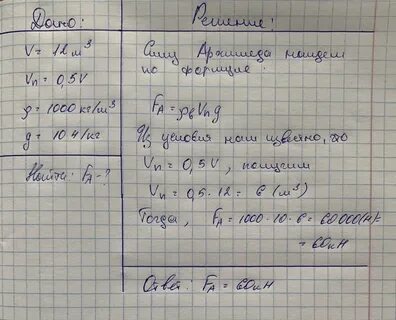 Дано:
V = 12 м³
Vп = 0,5V
ρ = 1000 кг/м³
g = 10 Н/кг
Найти: FА - ?
Решение:
Силу Архимеда найдем
по формуле:
FА = ρв Vп g
Из условия нам известно, что
Vп = 0,5V, получим
Vп = 0,5 · 12 = 6 (м³)
Тогда, FА = 1000 · 10 · 6 = 60000 (Н) =
= 60 кН
Ответ: FА = 60 кН